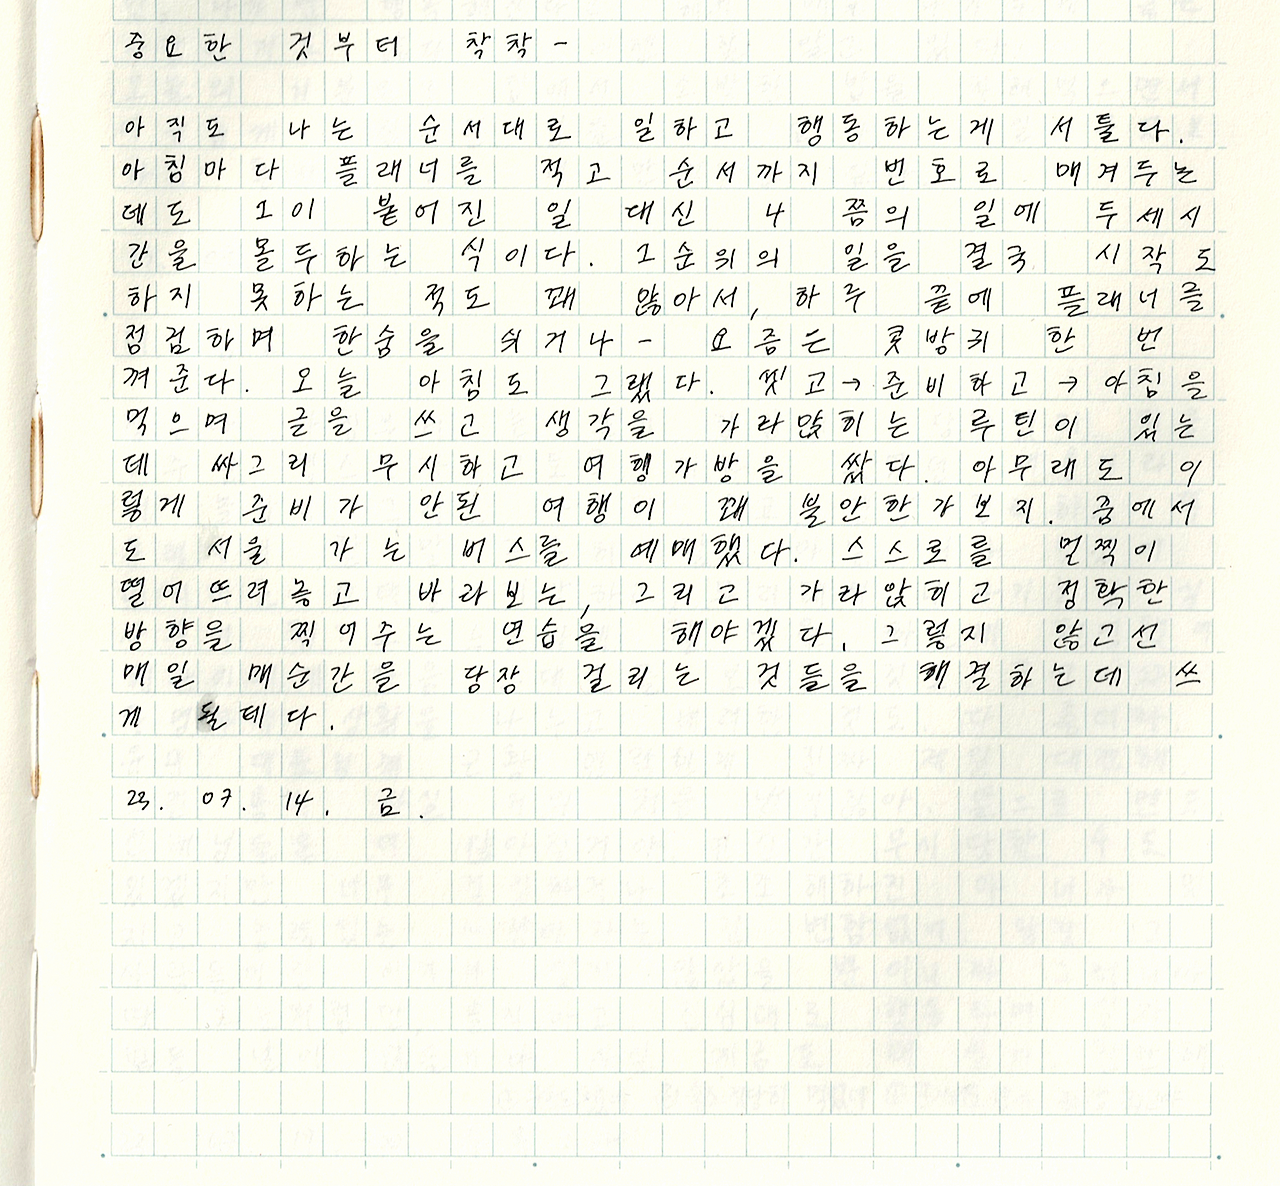 중요한 것부터 착착 -
아직도 나는 순서대로 일하고 행동하는게 서툴다.
아침마다 플래너를 적고 순서까지 번호로 매겨두는
데도 1이 붙어진 일 대신 4 쯤의 일에 두세시
간을 몰두하는 식이다. 1순위의 일을 결국 시작도
하지 못하는 적도 꽤 많아서, 하루 끝에 플래너를
점검하며 한숨을 쉬거나 - 요즘은 콧방귀 한 번
껴준다. 오늘 아침도 그랬다. 씻고→준비하고→아침을
먹으며 글을 쓰고 생각을 가라앉히는 루틴이 있는
데 싸그리 무시하고 여행가방을 쌌다. 아무래도 이
렇게 준비가 안된 여행이 꽤 불안한가보지. 줌에서
도 서울 가는 버스를 예매했다. 스스로를 멀찍이
떨어뜨려놓고 바라보는, 그리고 가라앉히고 정확한
방향을 찍어주는 연습을 해야겠다. 그렇지 않고선
매일 매순간을 당장 걸리는 것들을 해결하는데 쓰
게 될테다.
23. 07. 14. 금.